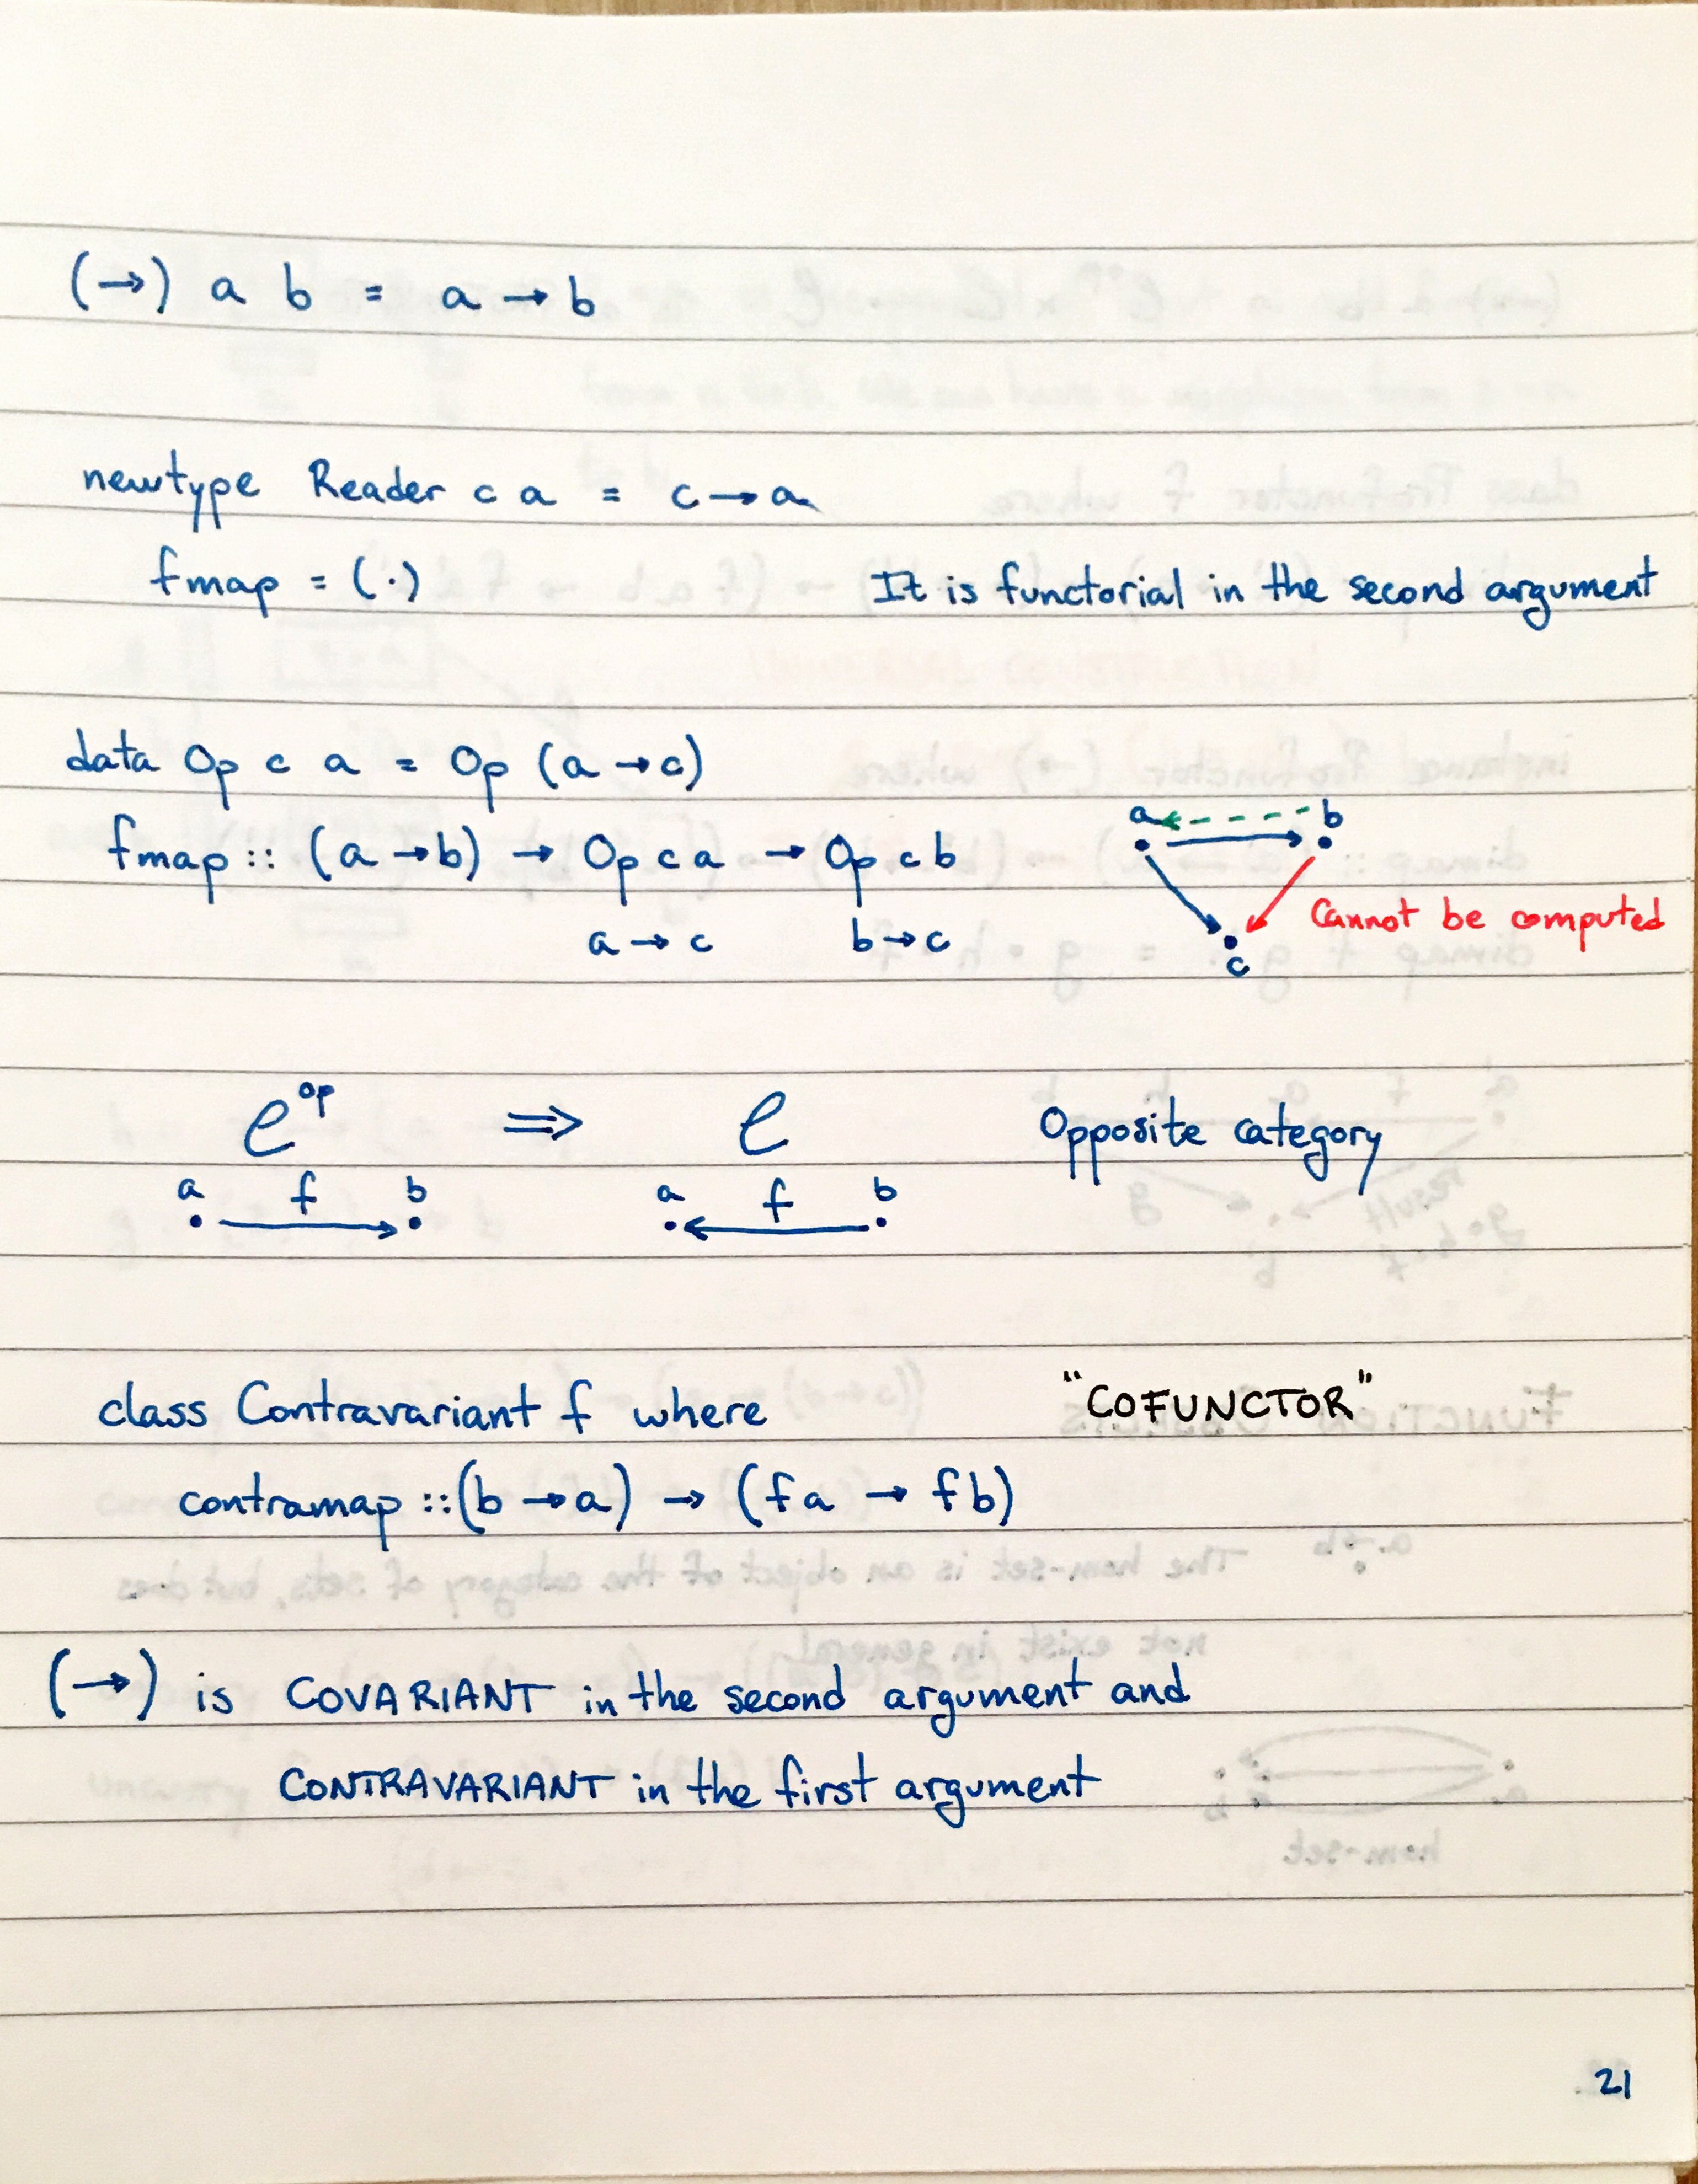 (→) a b = a → b
newtype Reader c a = c → a
fmap = (·) It is functorial in the second argument
data Op c a = Op (a → c)
a b
fmap :: (a → b) → Op c a → Op c b
a → c b → c
Cannot be computed
c
C^op ⇒ C Opposite category
a f b a f b
class Contravariant f where "COFUNCTOR"
contramap :: (b → a) → (f a → f b)
(→) is COVARIANT in the second argument and
CONTRAVARIANT in the first argument
21